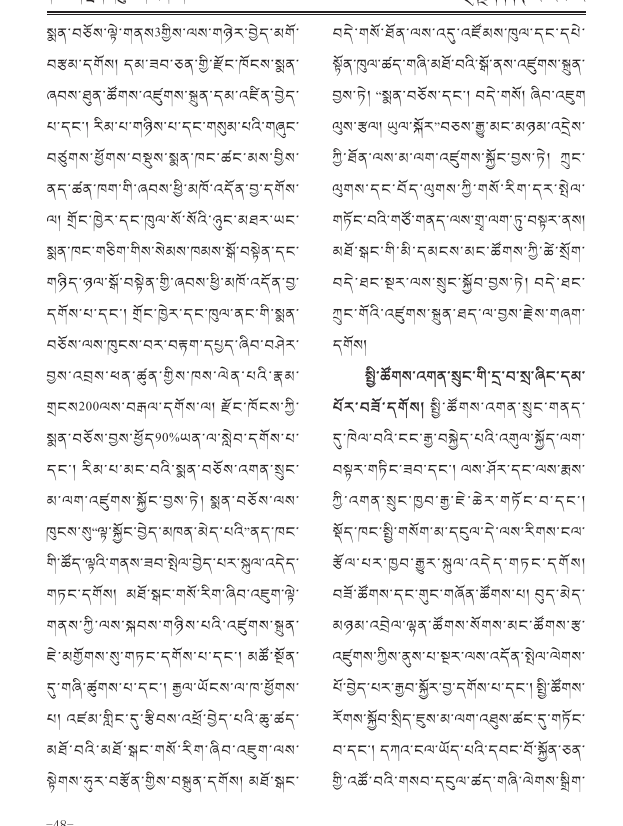 སྨན་བཅོས་ལྟེ་གནས3གྱིས་ལས་གཉེར་བྱེད་མགོ་
བརྩམ་དགོས། དམ་ཟབ་ཅན་གྱི་རྫོང་ཁོངས་སྨན་
ཞབས་ཐུན་ཚོགས་འཛུགས་སྐྲུན་དམ་འཛིན་བྱེད་
པ་དང་། རིམ་པ་གཉིས་པ་དང་གསུམ་པའི་གཞུང་
བཙུགས་ཕྱོགས་བསྡུས་སྨན་ཁང་ཚང་མས་བྱིས་
ནད་ཚན་ཁག་གི་ཞབས་ཕྱི་མཁོ་འདོན་བྱ་དགོས་
ལ། གྲོང་ཁྱེར་དང་ཁུལ་སོ་སོའི་ཉུང་མཐར་ཡང་
སྨན་ཁང་གཅིག་གིས་སེམས་ཁམས་སྒོ་བསྟེན་དང་
གཉིད་ཉལ་སྒོ་བསྟེན་གྱི་ཞབས་ཕྱི་མཁོ་འདོན་བྱ་
དགོས་པ་དང་། གྲོང་ཁྱེར་དང་ཁུལ་ནང་གི་སྨན་
བཅོས་ལས་ཁུངས་བར་བརྟག་དཔྱད་ཞིབ་བཤེར་
བྱས་འབྲས་ཕན་ཚུན་གྱིས་ཁས་ལེན་པའི་རྣམ་
གྲངས200ལས་བརྒལ་དགོས་ལ། རྫོང་ཁོངས་ཀྱི་
སྨན་བཅོས་བྱས་ཕྱོད90%ཡན་ལ་སླེབ་དགོས་པ་
དང་། རིམ་པ་མང་བའི་སྨན་བཅོས་འགན་སྲུང་
མ་ལག་འཛུགས་སྐྱོང་བྱས་ཏེ། སྨན་བཅོས་ལས་
ཁུངས་སུ“ལྟ་སྐྱོང་བྱེད་མཁན་མེད་པའི”ནད་ཁང་
གི་ཚོད་ལྟའི་གནས་ཟབ་སྤེལ་བྱེད་པར་སྐུལ་འདེད་
གཏང་དགོས། མཐོ་སྒང་གསོ་རིག་ཞིབ་འཇུག་ལྟེ་
གནས་ཀྱི་ལས་སྐབས་གཉིས་པའི་འཛུགས་སྐྲུན་
ཇེ་མགྱོགས་སུ་གཏང་དགོས་པ་དང་། མཚོ་སྔོན་
དུ་གཞི་ཚུགས་པ་དང་། རྒྱལ་ཡོངས་ལ་ཁ་ཕྱོགས་
པ། འཛམ་གླིང་དུ་རྩིབས་འཕྲོ་བྱེད་པའི་ཆུ་ཚད་
མཐོ་བའི་མཐོ་སྒང་གསོ་རིག་ཞིབ་འཇུག་ལས་
སྟེགས་ཧུར་བརྩོན་གྱིས་བསྐྲུན་དགོས། མཐོ་སྒང་
བདེ་གསོ་ཐོན་ལས་འདུ་འཛོམས་ཁུལ་དང་དཔེ་
སྟོན་ཁུལ་ཚད་གཞི་མཐོ་བའི་སྒོ་ནས་འཛུགས་སྐྲུན་
བྱས་ཏེ། “སྨན་བཅོས་དང་། བདེ་གསོ། ཞིབ་འཇུག
ལུས་རྩལ། ཡུལ་སྐོར”བཅས་རྒྱུ་མང་མཉམ་འདྲེས་
ཀྱི་ཐོན་ལས་མ་ལག་འཛུགས་སྐྱོང་བྱས་ཏེ། ཀྲུང་
ལུགས་དང་བོད་ལུགས་ཀྱི་གསོ་རིག་དར་སྤེལ་
གཏོང་བའི་གཙོ་གནད་ལས་གྲྭ་ལག་ཏུ་བསྟར་ནས།
མཐོ་སྒང་གི་མི་དམངས་མང་ཚོགས་ཀྱི་ཚེ་སྲོག་
བདེ་ཐང་སྔར་ལས་སྲུང་སྐྱོབ་བྱས་ཏེ། བདེ་ཐང་
ཀྲུང་གོའི་འཛུགས་སྐྲུན་ཐད་ལ་བྱས་རྗེས་གཞག་
དགོས།
སྤྱི་ཚོགས་འགན་སྲུང་གི་དྲ་བ་སྲ་ཞིང་དམ་
པོར་བཟོ་དགོས། སྤྱི་ཚོགས་འགན་སྲུང་གནད་
དུ་ཁེལ་བའི་ངང་རྒྱ་བསྐྱེད་པའི་འགུལ་སྐྱོད་ལག་
བསྟར་གཏིང་ཟབ་དང་། ལས་ཤོར་དང་ལས་རྨས་
ཀྱི་འགན་སྲུང་ཁྱབ་རྒྱ་ཇེ་ཆེར་གཏོང་བ་དང་།
སྡོད་ཁང་སྤྱི་གསོག་མ་དངུལ་དེ་ལས་རིགས་ངལ་
རྩོལ་པར་ཁྱབ་རྒྱུར་སྐུལ་འདེད་གཏང་དགོས།
བཟོ་ཚོགས་དང་གུང་གཞོན་ཚོགས་པ། བུད་མེད་
མཉམ་འབྲེལ་ལྷན་ཚོགས་སོགས་མང་ཚོགས་རྩ་
འཛུགས་ཀྱིས་ནུས་པ་སྔར་ལས་འདོན་སྤེལ་ལེགས་
པོ་བྱེད་པར་རྒྱབ་སྐྱོར་བྱ་དགོས་པ་དང་། སྤྱི་ཚོགས་
རོགས་སྐྱོབ་སྲིད་ཇུས་མ་ལག་འཐུས་ཚང་དུ་གཏོང་
བ་དང་། དཀའ་ངལ་ཡོད་པའི་དབང་པོ་སྐྱོན་ཅན་
གྱི་འཚོ་བའི་གསབ་དངུལ་ཚད་གཞི་ལེགས་སྒྲིག་
–48–